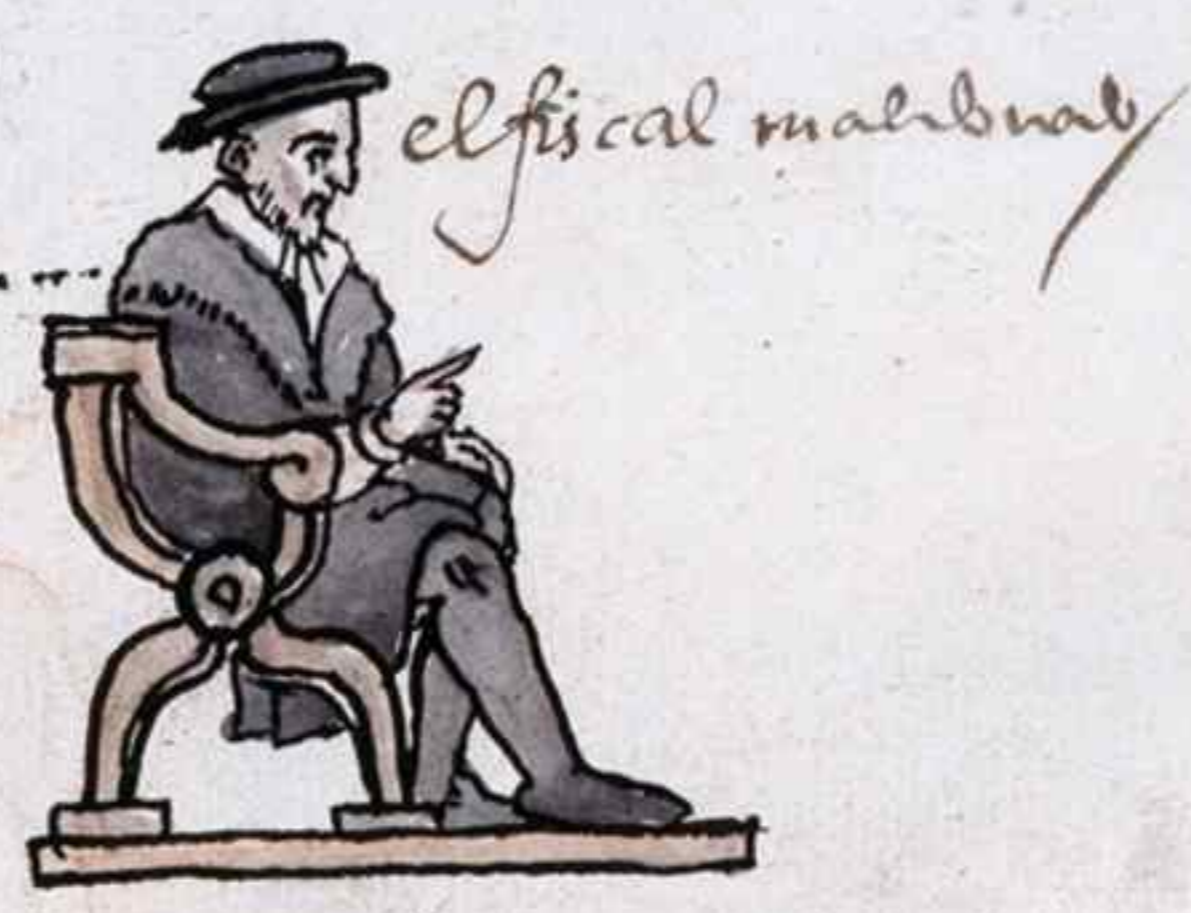 el fiscal maldonado